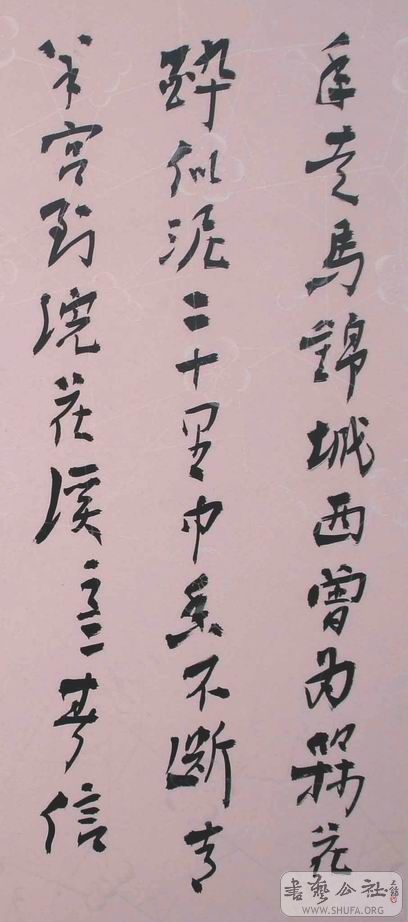 年走馬錦城西曾為槑花
醉似泥二十里中香不斷青
羊宮到浣花溪春信
書藝公社
WWW.SHUFA.ORG